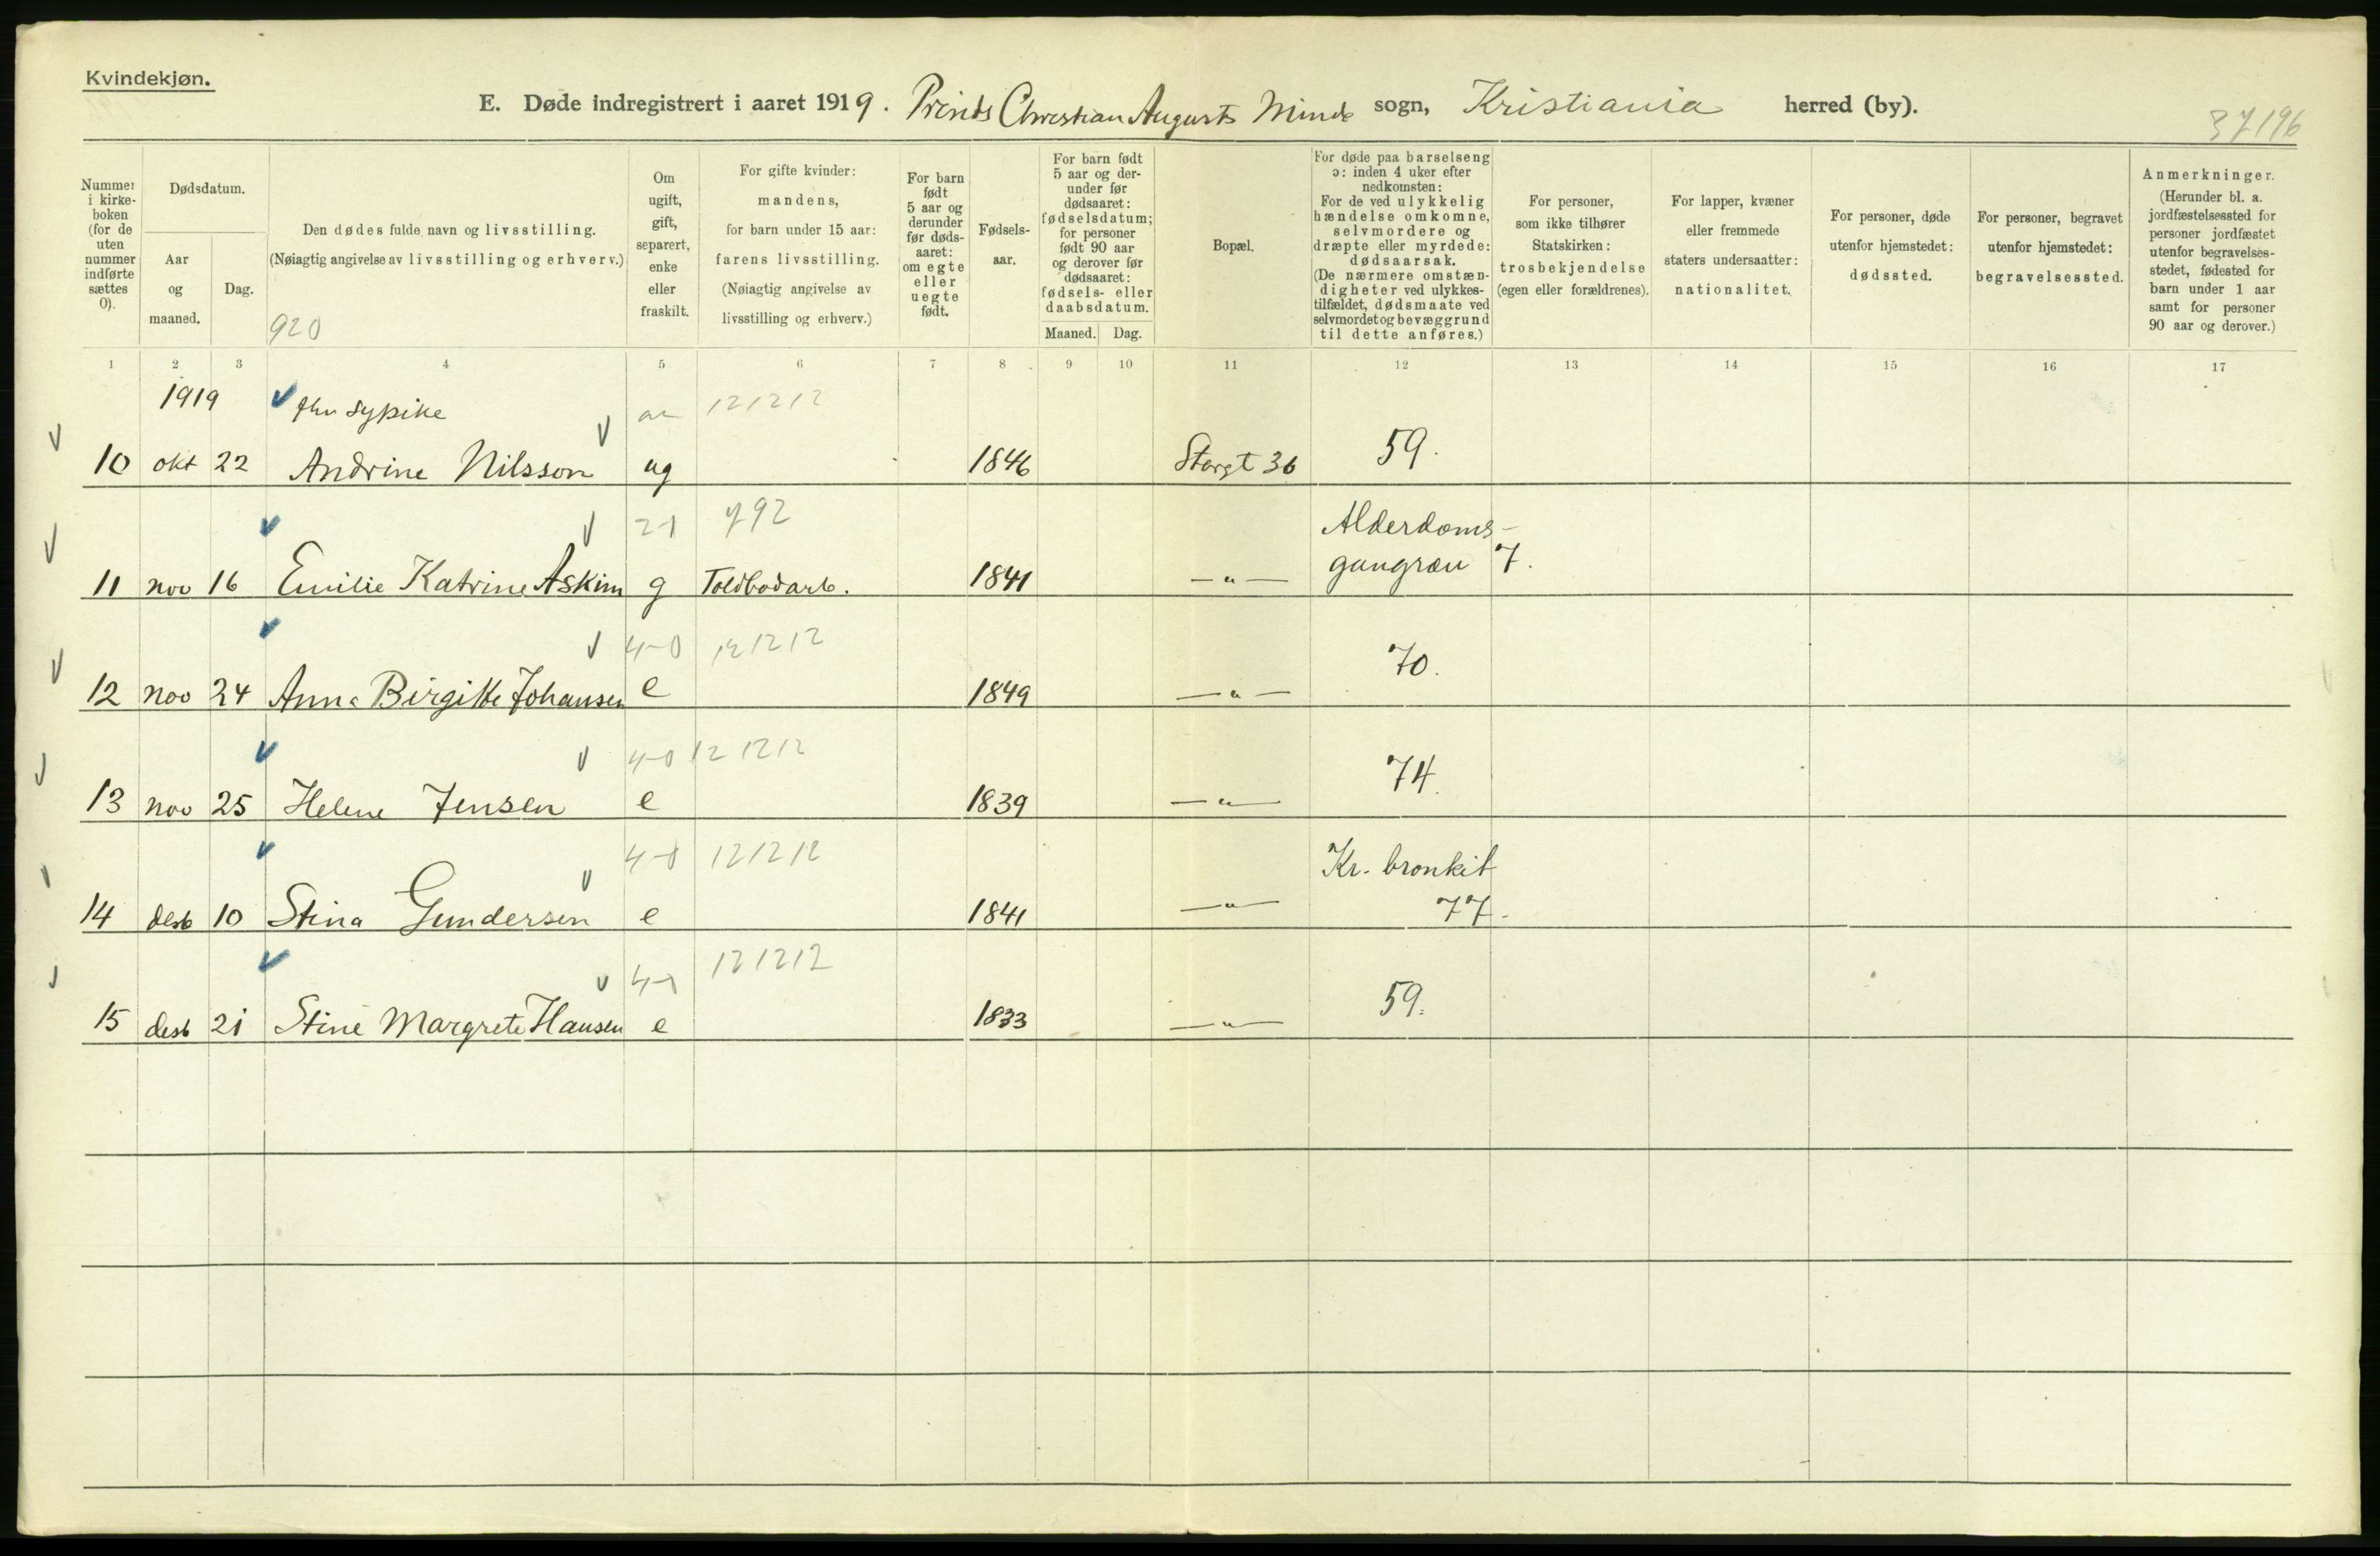 Kvindekjøn.
E. Døde indregistrert i aaret 1919. Prinds Christian Augusts Minde sogn, Kristiania herred (by).
37196
Nummer i kirkeboken (for de uten nummer indførte sættes 0).
Dødsdatum.
Aar og maaned.
Dag.
Den dødes fulde navn og livsstilling.
(Nøiagtig angivelse av livsstilling og erhverv.)
920
Om ugift, gift, separert, enke eller fraskilt.
For gifte kvinder: mandens, for barn under 15 aar: farens livsstilling. (Nøiagtig angivelse av livsstilling og erhverv.)
For barn født 5 aar og derunder før dødsaaret: om egte eller uegte født.
Fødselsaar.
For barn født 5 aar og derunder før dødsaaret: fødselsdatum; for personer født 90 aar og derover før dødsaaret: fødsels- eller daabsdatum.
Maaned. Dag.
Bopæl.
For døde paa barselseng ɔ: inden 4 uker efter nedkomsten: For de ved ulykkelig hændelse omkomne, selvmordere og dræpte eller myrdede: dødsaarsak. (De nærmere omstændigheter ved ulykkestilfældet, dødsmaate ved selvmordet og bevæggrund til dette anføres.)
For personer, som ikke tilhører Statskirken: trosbekjendelse (egen eller forældrenes).
For lapper, kvæner eller fremmede staters undersaatter: nationalitet.
For personer, døde utenfor hjemstedet: dødssted.
For personer, begravet utenfor hjemstedet: begravelsessted.
Anmerkninger. (Herunder bl. a. jordfæstelsessted for personer jordfæstet utenfor begravelsesstedet, fødested for barn under 1 aar samt for personer 90 aar og derover.)
1 2 3 4 5 6 7 8 9 10 11 12 13 14 15 16 17
1919 sypike 121212
10 okt 22 Andrine Nilsson ug 1846 Storgt 36 59.
21 792 Alderdoms-
11 nov 16 Emilie Katrine Askim g Toldbodarb. 1841 —"— gangræn 7.
4-0 121212
12 nov 24 Anna Birgitte Johansen e 1849 —"— 70.
4-0 121212
13 nov 25 Helene Jensen e 1839 —"— 74.
4-0 121212 Kr. bronkit
14 desb 10 Stina Gundersen e 1841 —"— 77.
121212
15 desb 21 Stine Margrete Hansen e 1833 —"— 59.